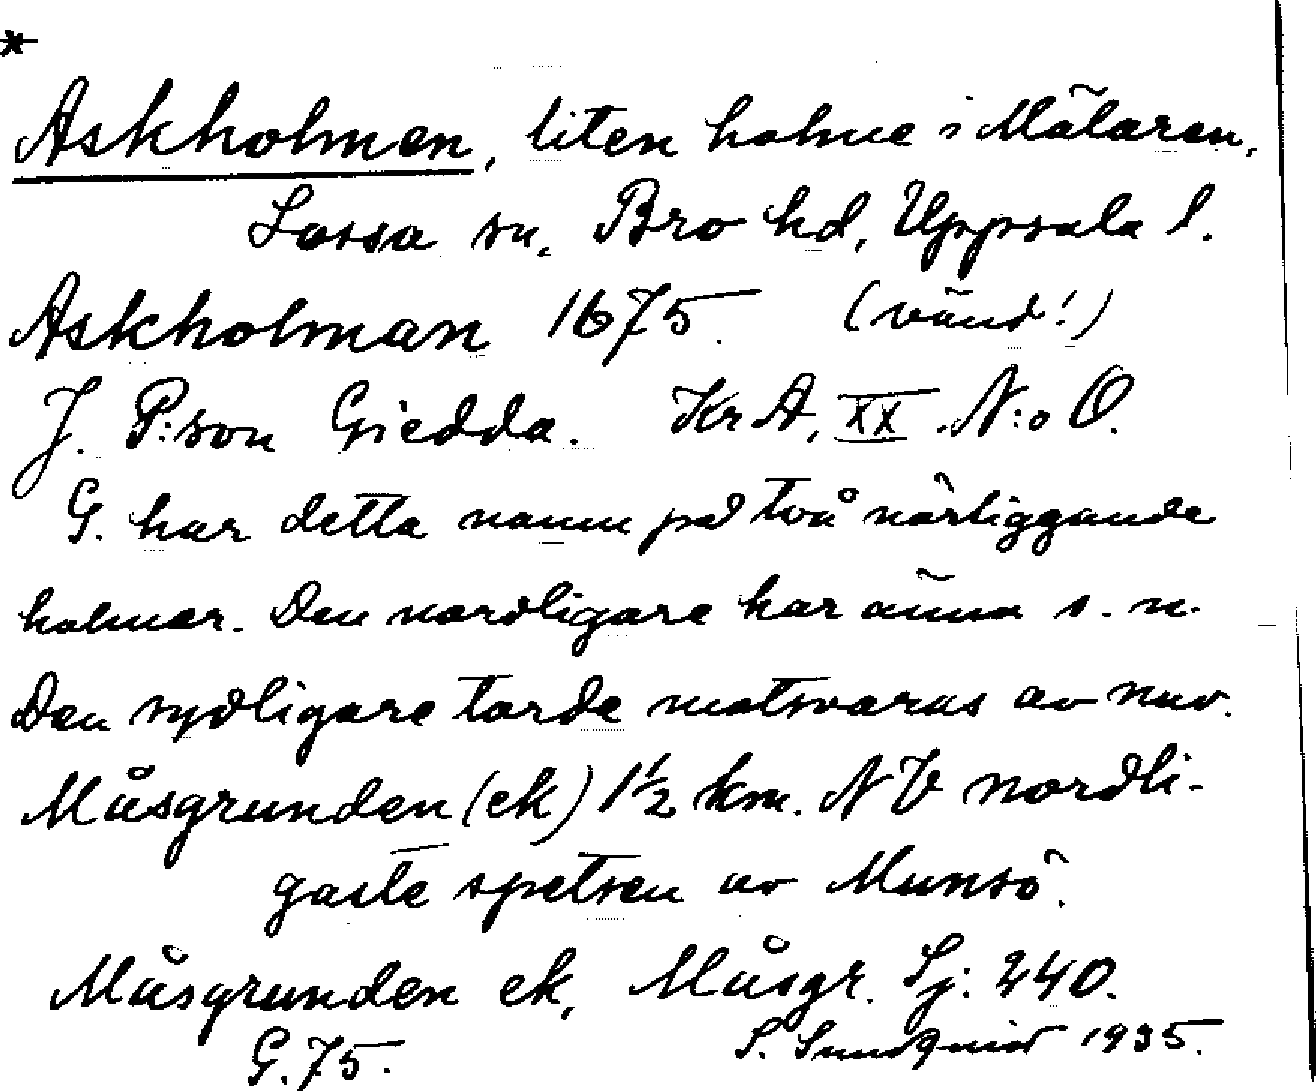 *
Askholmen, liten holme i Mälaren,
Lossa sn, Bro hd, Uppsala l.
Askholman 1675. (vänd!)
J. P:son Giedda. KrA, XX. N:o O.
G. har detta namn på två närliggande
holmar. Den nordligare har ännu s. n.
Den sydligare torde motsvaras av nuv.
Måsgrunden (ek) 1½ km. NV nordli-
gaste spetsen av Munsö.
Måsgrunden ek, Måsgr. Sj. 240.
G. 75. S. Sundquist 1935.